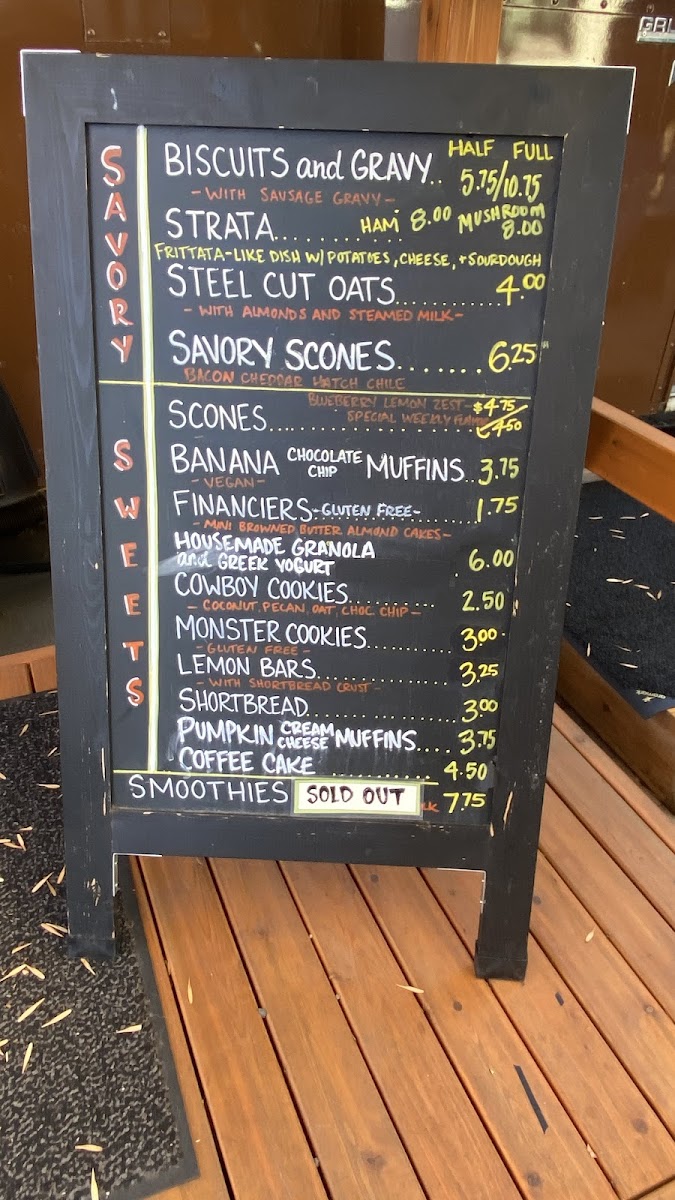 GRI
HALF FULL
BISCUITS and GRAVY.. 5.75/10.75
- WITH SAUSAGE GRAVY -
STRATA.......... HAM 8.00 MUSHROOM 8.00
FRITTATA-LIKE DISH W/ POTATOES, CHEESE, + SOURDOUGH
STEEL CUT OATS.......... 4.00
- WITH ALMONDS AND STEAMED MILK -
SAVORY SCONES....... 6.25
BACON CHEDDAR HATCH CHILE
SAVORY
BLUEBERRY LEMON ZEST - $4.75
SCONES.......... SPECIAL WEEKLY 4.50
BANANA CHOCOLATE CHIP MUFFINS.. 3.75
- VEGAN -
FINANCIERS - GLUTEN FREE - ....... 1.75
- MINI BROWNED BUTTER ALMOND CAKES -
HOUSEMADE GRANOLA
and GREEK YOGURT . 6.00
COWBOY COOKIES.......... 2.50
- COCONUT, PECAN, OAT, CHOC. CHIP -
MONSTER COOKIES.......... 3.00
- GLUTEN FREE -
LEMON BARS.......... 3.25
- WITH SHORTBREAD CRUST -
SHORTBREAD.......... 3.00
PUMPKIN CREAM CHEESE MUFFINS.... 3.75
COFFEE CAKE .......... 4.50
SWEETS
SMOOTHIES SOLD OUT 7.75